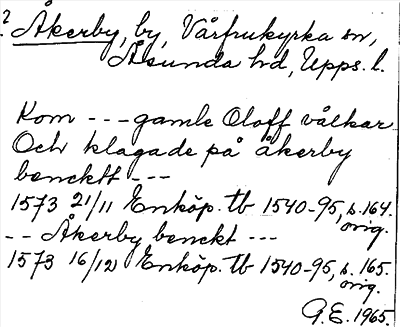 ? Åkerby, by, Vårfrukyrka sn,
Åsunda hd, Upps. l.
Kom --- gamle Oloff vålkar
Och klagade på åkerby
bencktt ---
1573 21/11 Enköp. tb 1540-95, s. 164.
orig.
-- Åkerby benckt ---
1573 16/12 Enköp. tb 1540-95, s. 165.
orig.
G.E. 1965.